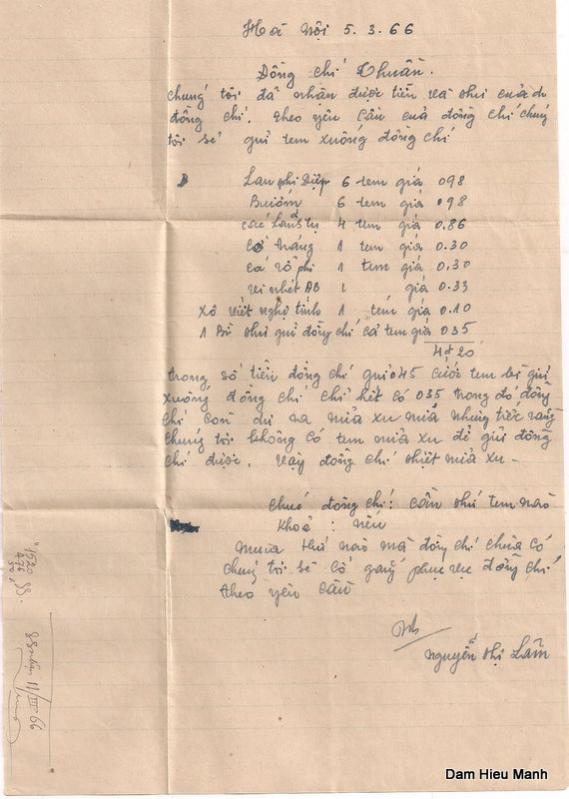 Hà Nội 5.3.66
Đồng chí Thuần.
chúng tôi đã nhận được tiền và thư của
đồng chí. theo yêu cầu của đồng chí chúng
tôi sẽ gửi tem xuống đồng chí
Lan phi Điệp 6 tem giá 098
Bướm 6 tem giá 098
các 4 tem giá 0.86
1 tem giá 0.30
cá rô phi 1 tem giá 0.30
giá 0.33
Xô viết nghệ tĩnh 1 tem giá 0.10
1 Bì thư gửi đồng chí cả tem giá 035
4đ20
trong số tiền đồng chí gửi 045 cước tem để gửi
xuống đồng chí chỉ hết có 035 trong đó đồng
chí còn dư ra nửa xu nữa nhưng tiếc rằng
chúng tôi không có tem nửa xu để gửi đồng
chí được. vậy đồng chí thiệt nửa xu -
chúc đồng chí: cần thứ tem nào
khoẻ : nếu
mua thứ nào mà đồng chí chưa có
chúng tôi sẽ cố gắng phục vụ đồng chí
theo yêu cầu
nguyễn thị Lâm
11/III 66
Dam Hieu Manh